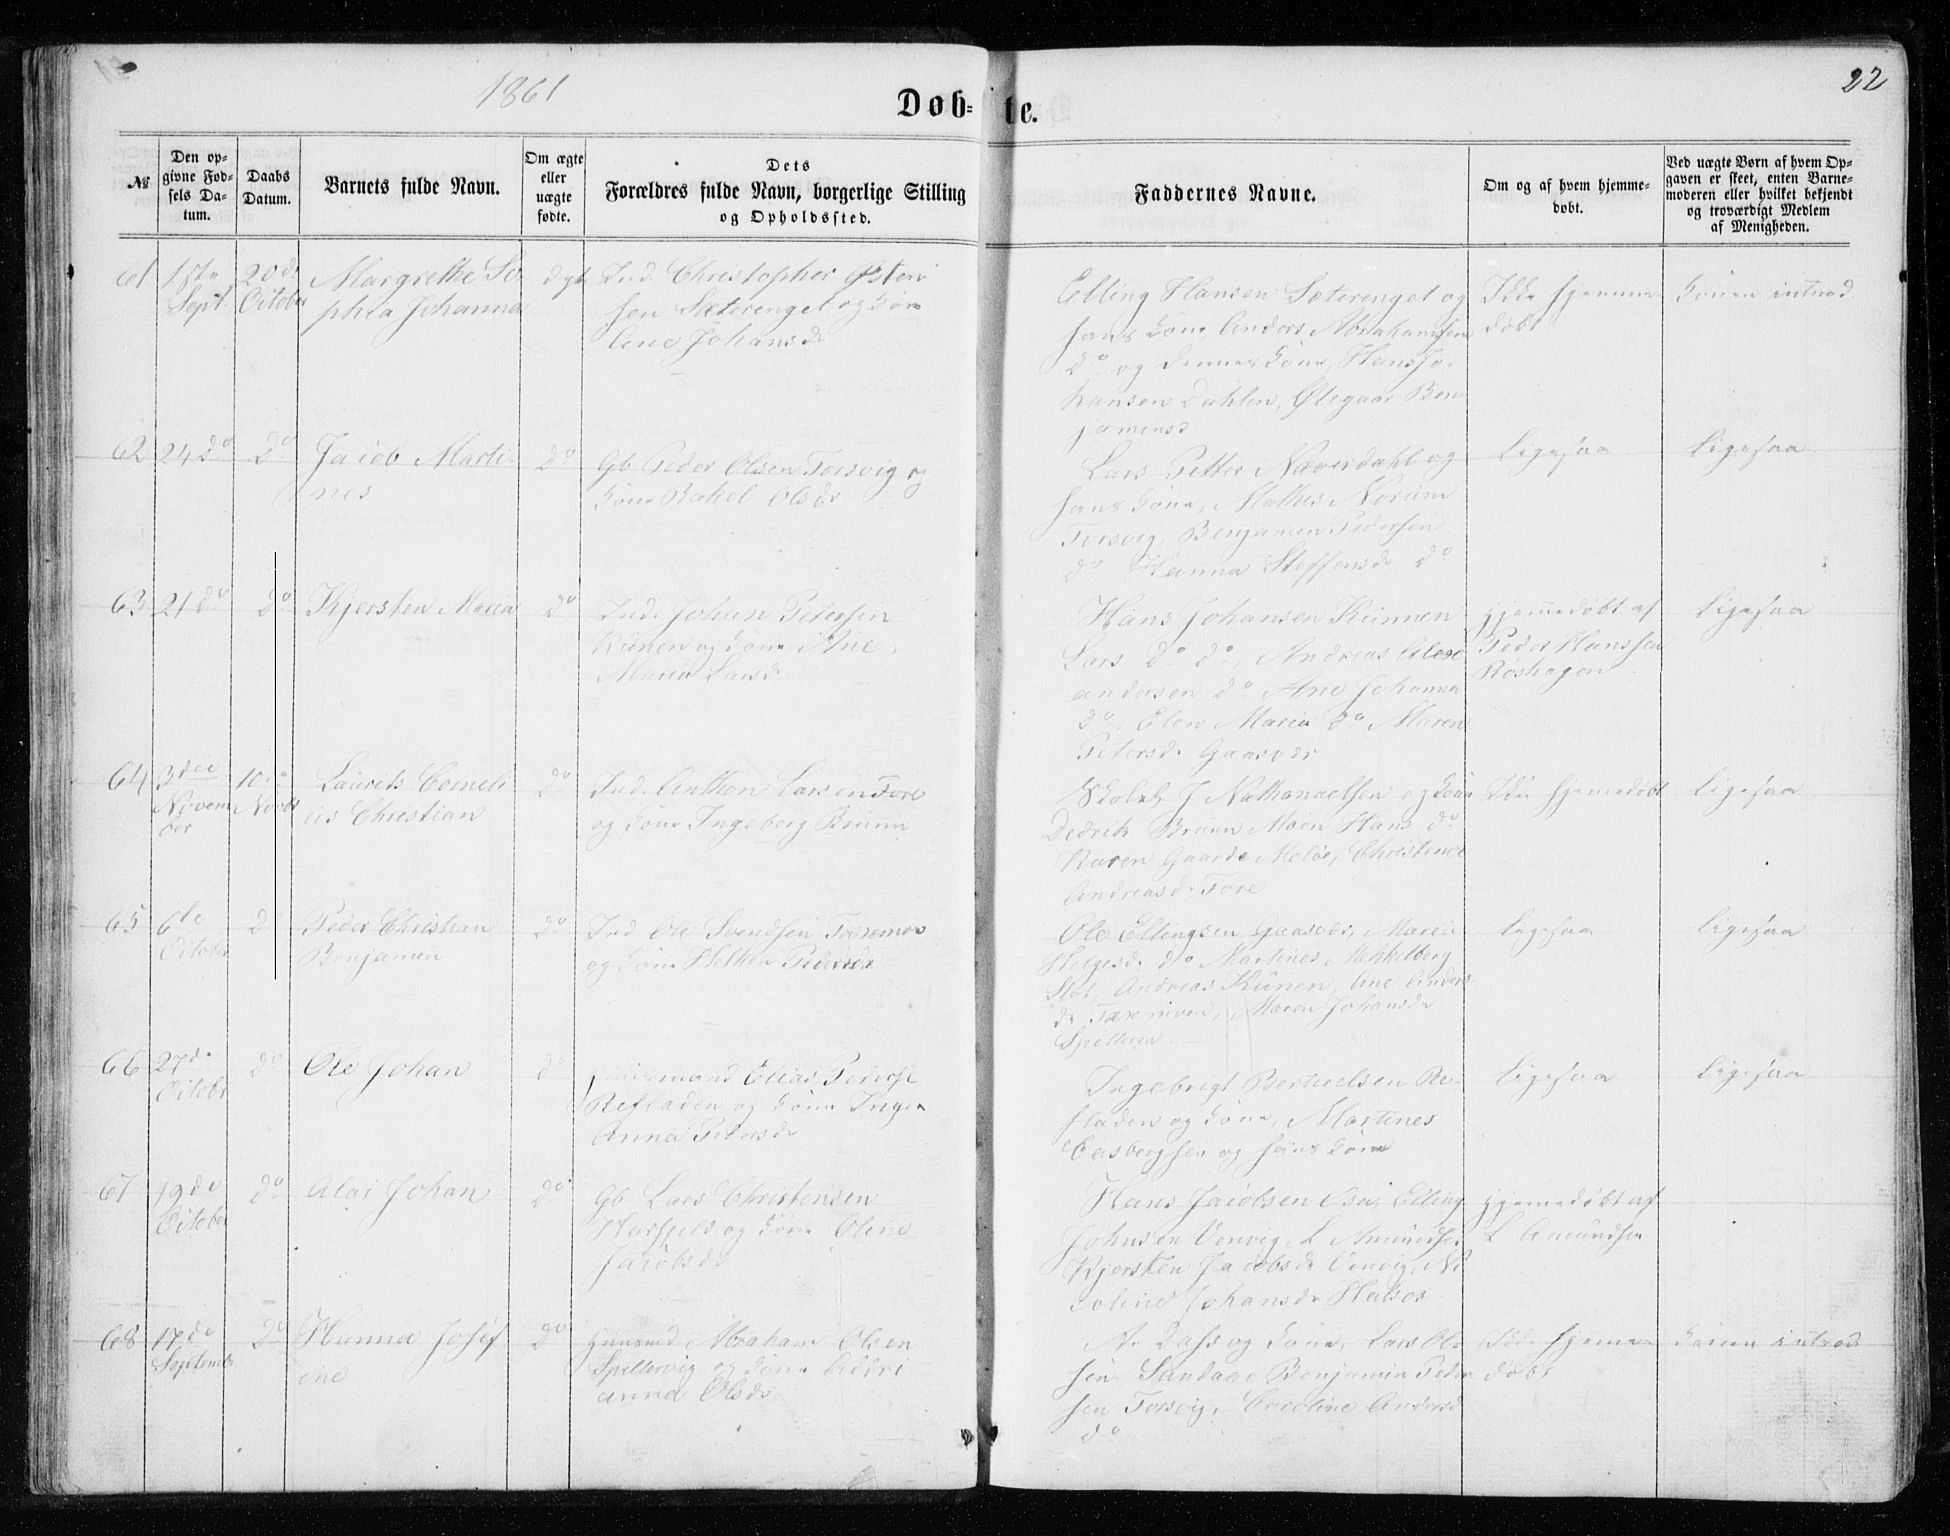 1861
22
Døb-te.
№
Den op-
givne Fød-
sels Da-
tum.
Daabs
Datum.
Barnets fulde Navn.
Om ægte
eller
uægte
fødte.
Dets
Forældres fulde Navn, borgerlige Stilling
og Opholdssted.
Faddernes Navne.
Om og af hvem hjemme-
døbt.
Ved uægte Børn af hvem Op-
gaven er skeet, enten Barne-
moderen eller hvilket bekjendt
og troværdigt Medlem
af Menigheden.
61
Sept
20de
October
Margrethe So
phia Johanna
Ind. Christopher
sen Sæterenget og Kone
Ane Johansd
Elling Hansen Sæterenget og
hans Kone, Anders Abrahamsen
do og dennes Kone, Hans Jo-
hansen Dahlen, Ølegaar Ben
jaminsd
Ikke hjemme-
døbt
Konen introd.
62
24 do
do
Jacob Marti-
nes
do
Gb Peder Olsen Torsvig og
Kone Rakel Olsdr
Lars Petter Næverdahl og
hans Kone, Mathis Norum
Torsvig, Benjamin Pedersen
do Hanna Steffensd do
Ligesaa
Ligesaa
63
21 do
do
Kjersten Maria
do
Ind. Johan Petersen
Kunen og Kone Ane
Maria Larsd
Hans Johansen Kunnen
Lars do do, Andreas Alex
andersen do Ane Johanna
do, Elen Maria do Maren
Petersd Gaasvær
Hjemmedøbt af
Peder Hanssen
Røshagen
Ligesaa
64
3die
Novem
ber
10de
Novbr
Laurits Corneli
us Christian
do
Ind. Anthon Larsen Fore
og Kone Ingeborg Bruun
Skoleh J Nathanaelsen og Kone
Dedrik Bruun Moen, Hans do
Karen Gaarde Meløe, Christence
Andreasd Fore
Ikke hjemmedøbt
Ligesaa
65
6te
October
do
Peder Christian
Benjamin
do
Ind Ole Svendsen
og Kone
Ole Ellingsen Gaasvær, Maria
Helgesd do Martines Mekkelborg
Støt, Andreas Kunen, Ane Anders
Maren Johansdr
Spilderen
Ligesaa
Ligesaa
66
27de
Octobr
do
Ole Johan
do
Huusmand Elias Peders
Refladen og Kone Inger
Anna Petersdr
Ingebrigt Bertoelsen Re-
fladen og Kone, Martines
og hans Kone
Ligesaa
Ligesaa
67
19de
October
do
Johan
do
Gb Lars Christensen
og Kone Oline
Jacobsdr
Hans Jacobsen Elling
Johnsen Venvig, L Amundsen
Kjersten Jacobsd Venvig, Ni
coline Johansdr Halsos
Hjemmedøbt af
L Amundsen
68
17de
Septemb
do
Hanna Josef
ine
do
Huusmd Abraham Olsen
Spildervig og Kone Addri
anna Olsdr
N. Dass og Kone, Lars Ol-
sen Sandaae Benjamin Peder
sen Torsvig, Caroline Andersd
do
Ikke hjemme-
døbt
Konen introd